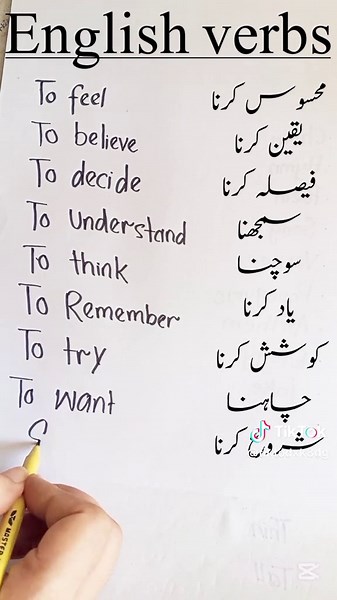 English verbs
To feel محسوس کرنا
To believe یقین کرنا
To decide فیصلہ کرنا
To understand سمجھنا
To think سوچنا
To Remember یاد کرنا
To try کوشش کرنا
To want چاہنا
S شروع کرنا
TikTok
MASTER